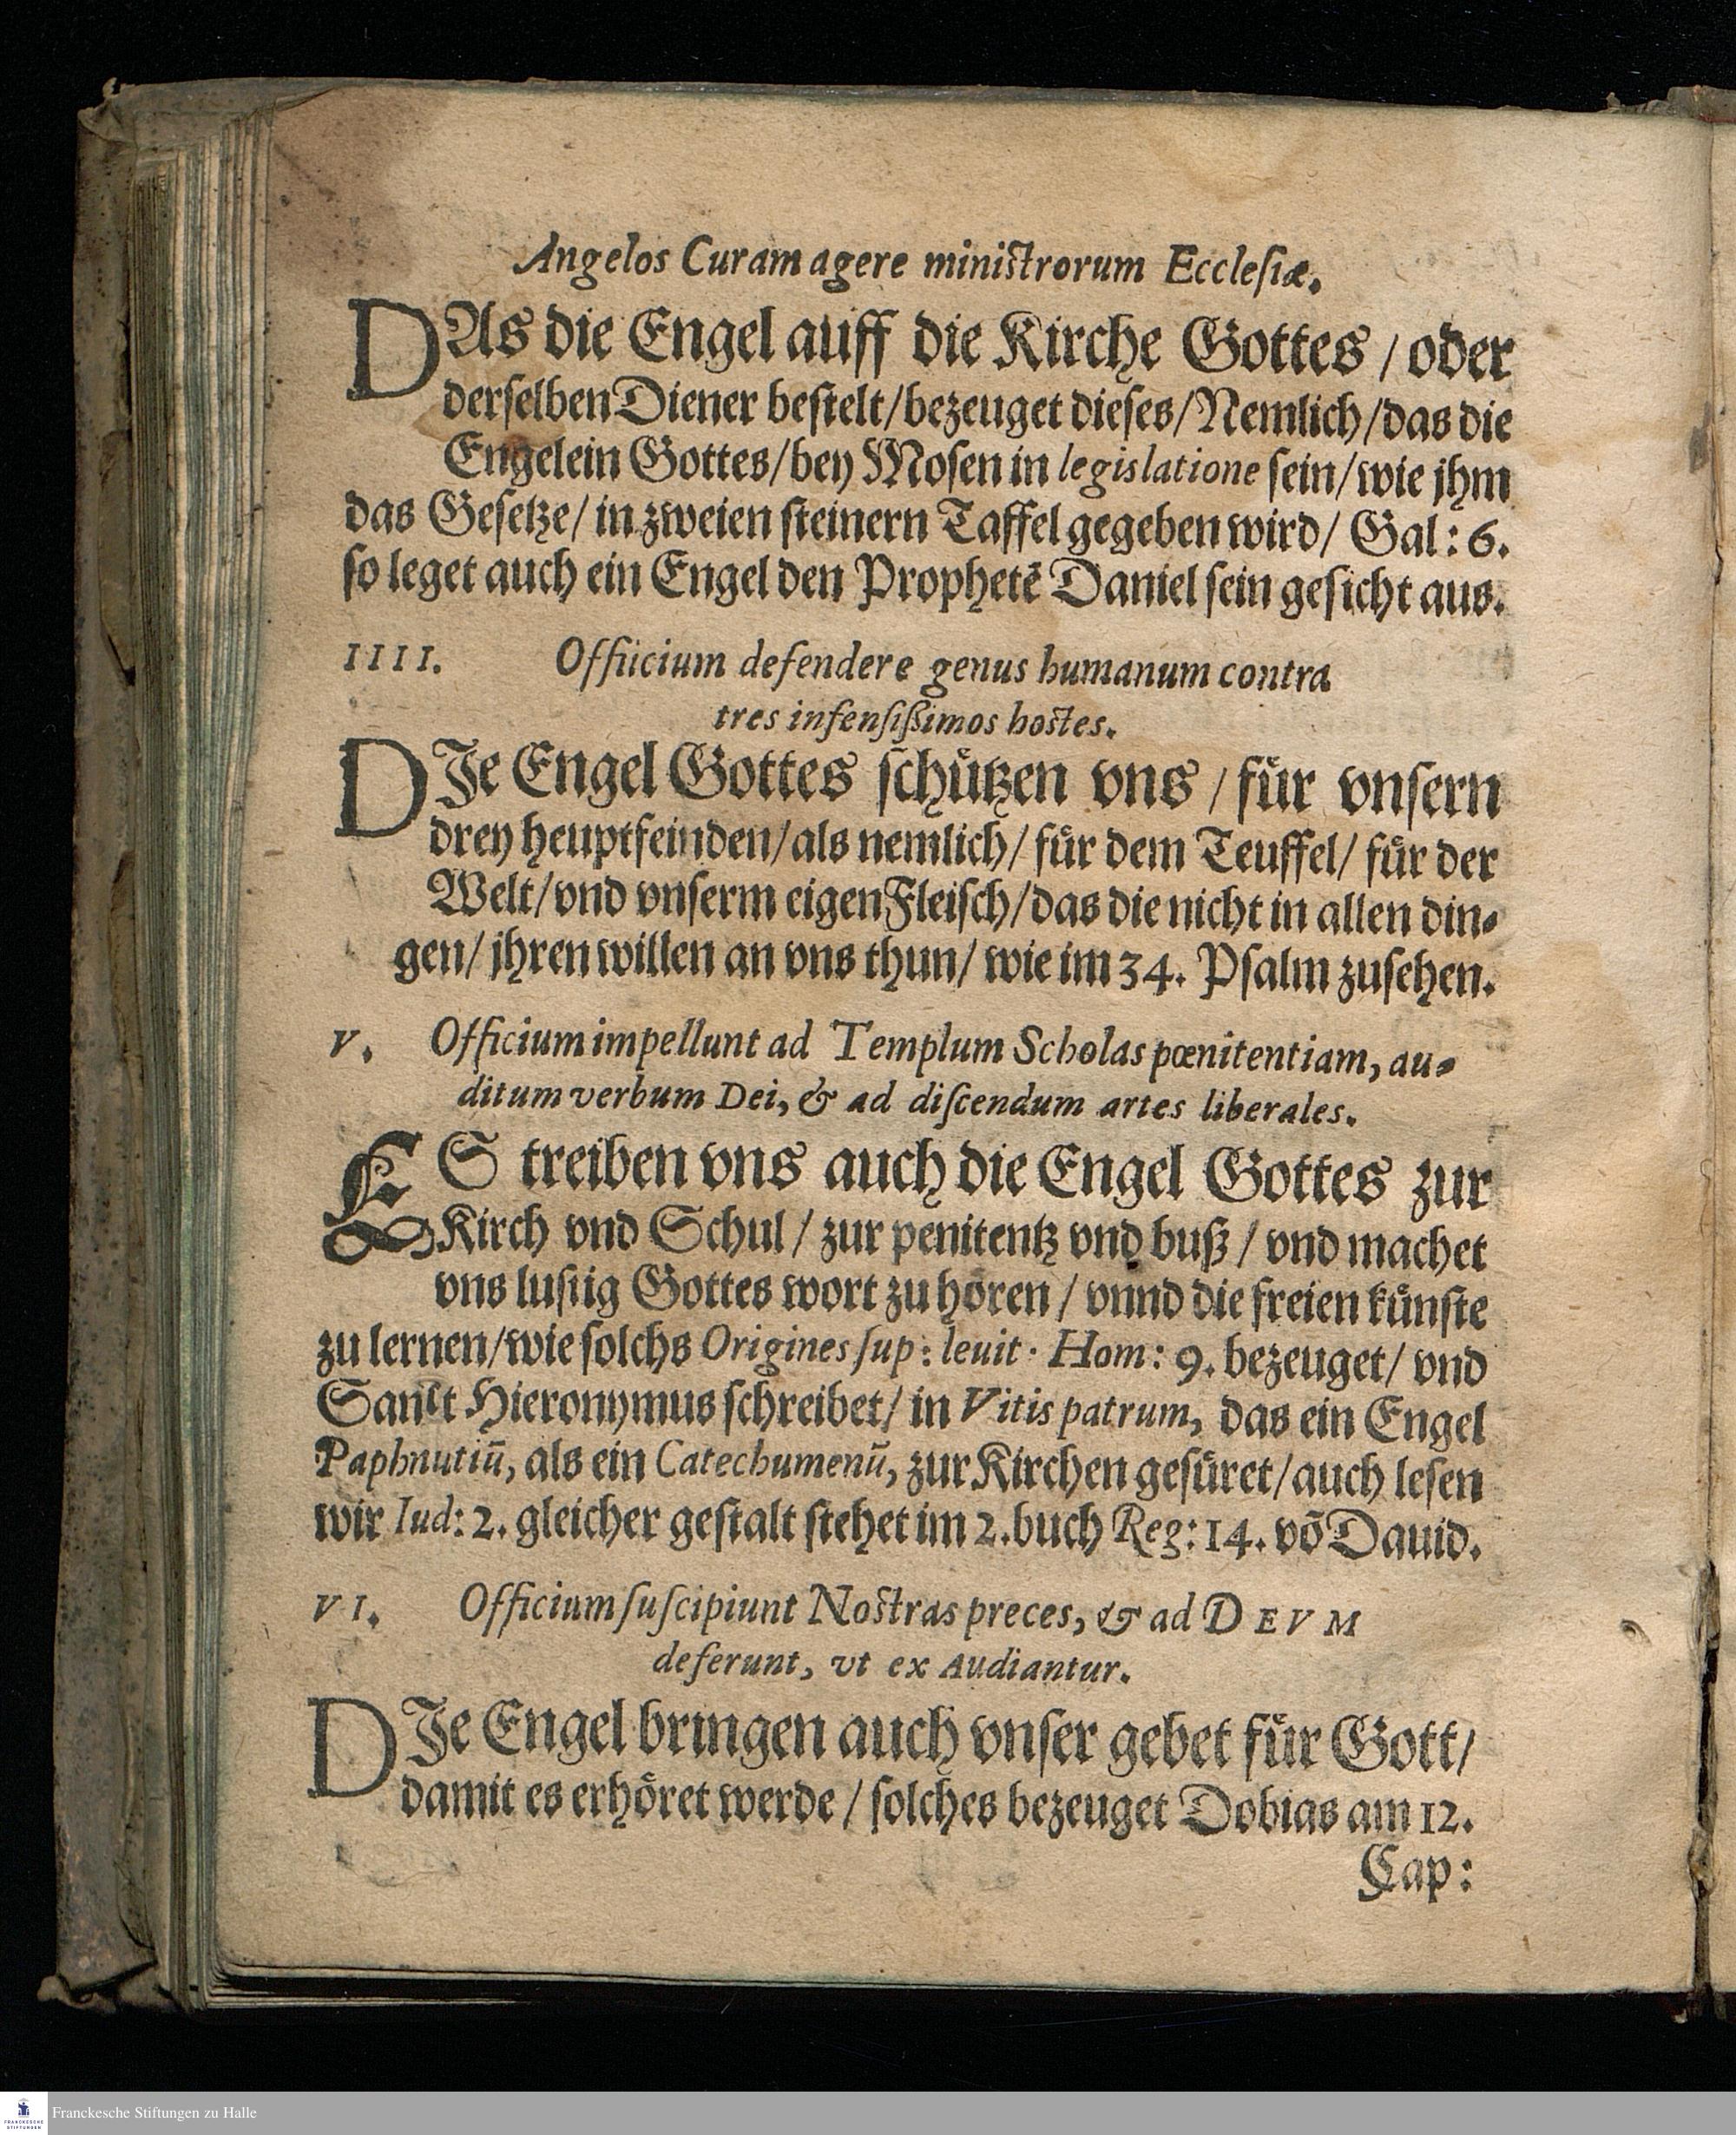 Angelos Curam agere ministrorum Ecclesiæ.
DAs die Engel auff die Kirche Gottes / oder
derselben Diener bestelt/bezeuget dieses/Nemlich/das die
Engelein Gottes/bey Mosen in legislatione sein/wie jhm
das Gesetze/ in zweien steinern Taffel gegeben wird/ Gal: 6.
so leget auch ein Engel den Prophetē Daniel sein gesicht aus.
IIII. Offiicium defendere genus humanum contra
tres infensißimos hostes.
DIe Engel Gottes schützen vns / für vnsern
drey heuptfeinden/als nemlich/ für dem Teuffel/ für der
Welt/vnd vnserm eigen Fleisch/das die nicht in allen din-
gen/ jhren willen an vns thun/ wie im 34. Psalm zusehen.
V. Officium impellunt ad Templum Scholas pœnitentiam, au-
ditum verbum Dei, & ad discendum artes liberales.
ES treiben vns auch die Engel Gottes zur
Kirch vnd Schul / zur penitentz vnd buß / vnd machet
vns lustig Gottes wort zu hören / vnnd die freien künste
zu lernen/wie solchs Origines sup: leuit. Hom: 9. bezeuget/ vnd
Sanct Hieronymus schreibet/ in Vitis patrum, das ein Engel
Paphnutiū, als ein Catechumenū, zur Kirchen gefüret/auch lesen
wir Iud: 2. gleicher gestalt stehet im 2. buch Reg: 14. võ Dauid.
VI. Officium suscipiunt Nostras preces, & ad DEVM
deferunt, vt ex Audiantur.
DIe Engel bringen auch vnser gebet für Gott/
damit es erhöret werde / solches bezeuget Dobias am 12.
Cap:
Franckesche Stiftungen zu Halle
FRANCKESCHE
STIFTUNGEN